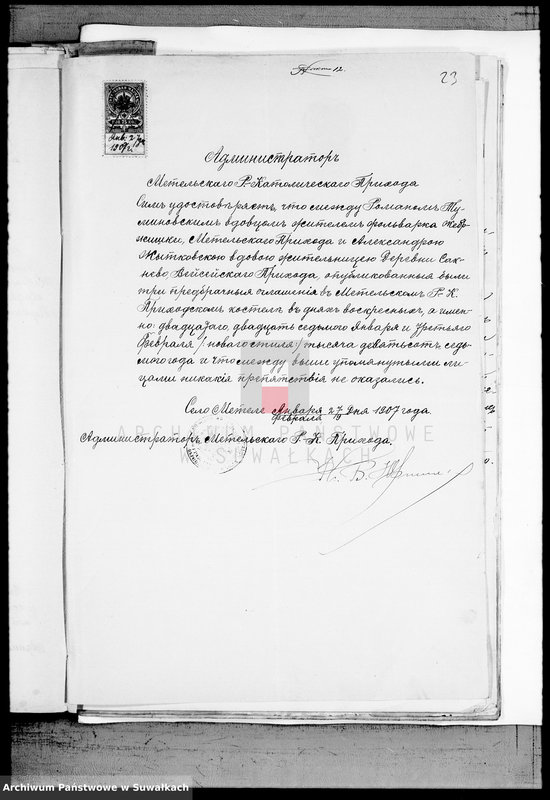 23
Администраторъ
Метельскаго Р-Католическаго Прихода
Симъ удостовѣряетъ, что между Романомъ Ту-
миновскимъ вдовцомъ жителемъ фольварка
жишки, Метельскаго Прихода и Александрою
Жытковскою вдовою жительницею Деревни Сак-
нево Вейсейскаго Прихода, опубликованныя были
три предбрачныя оглашенія въ Метельскомъ Р-К.
Приходскомъ костелѣ въ дняхъ воскресныхъ, а имен-
но: двадцатаго двадцать седьмого Января и третьяго
Февраля /новаго стиля/ тысяча девятьсотъ седь-
мого года и что между выше упомянутыми ли-
цами никакія препятствія не оказались.
Село Метеле Января 27 дня 1907 года.
Февраля
Администраторъ Метельскаго Р-К. Прихода,
ARCHIWUM PAŃSTWOWE
W SUWAŁKACH
Archiwum Państwowe w Suwałkach